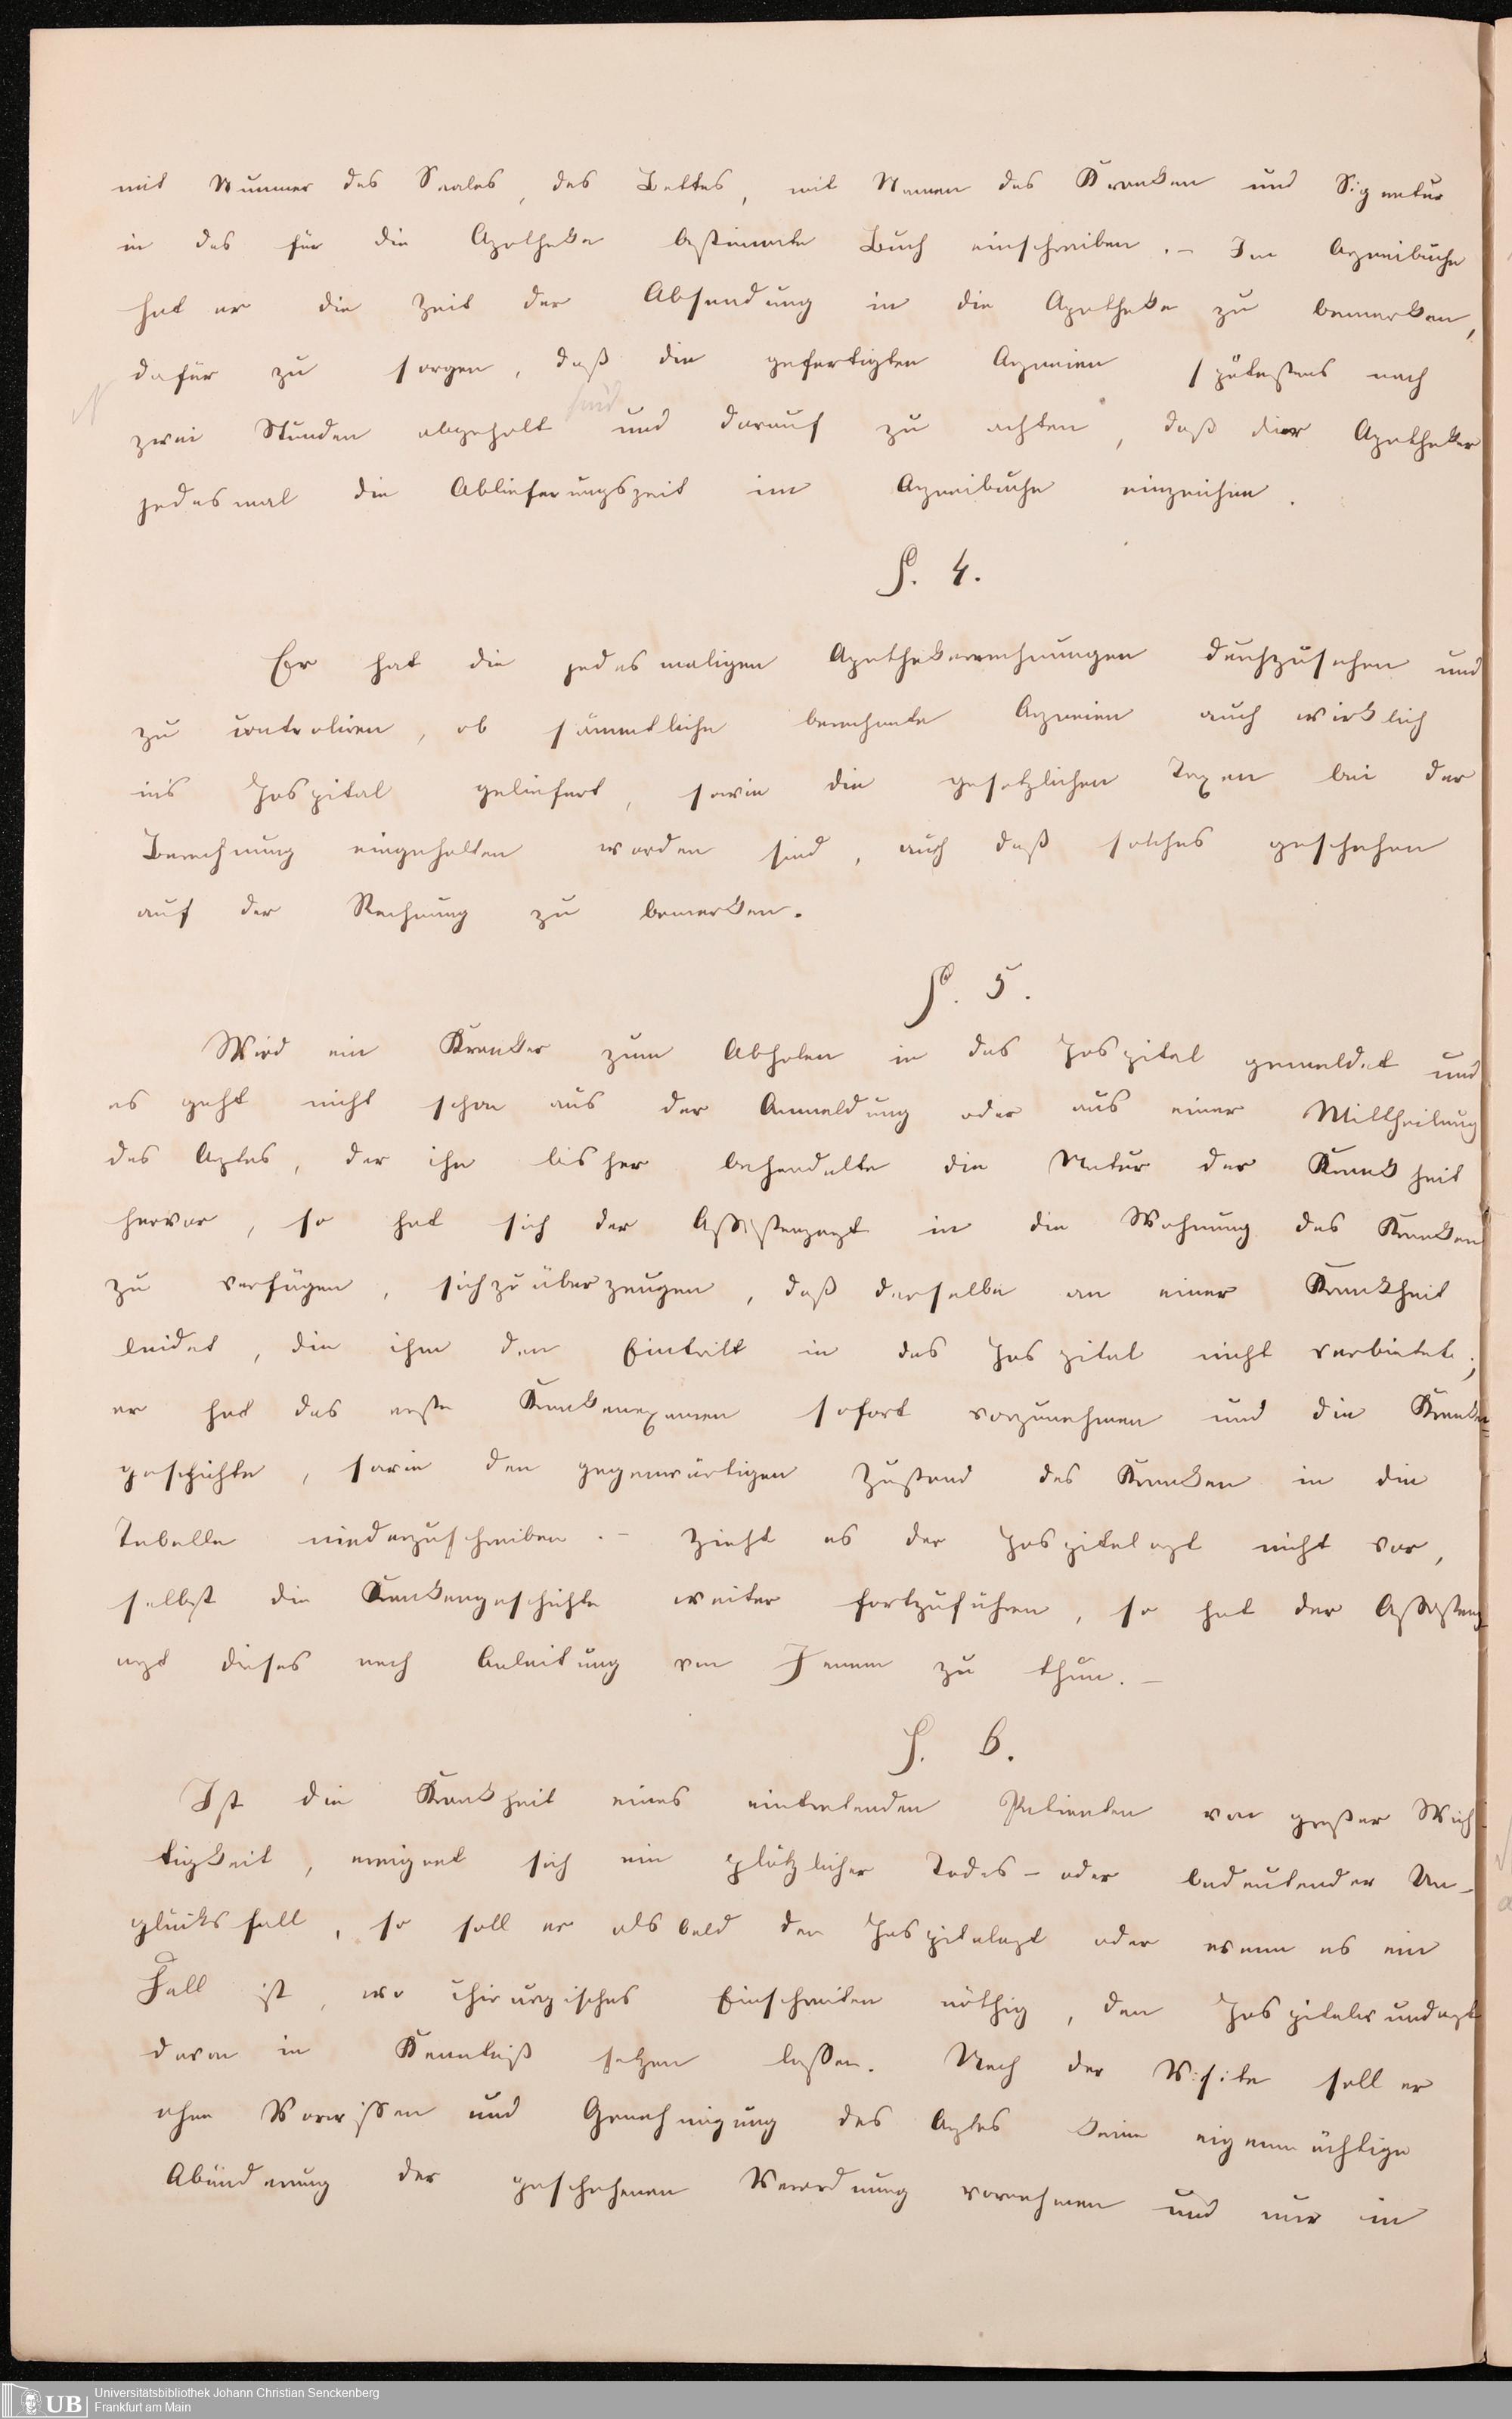 mit Nummer des Saales, des Bettes, mit Namen des Kranken und Signatur
in das für die Apotheke bestimmte Buch einschreiben. – Im Arzneibuche
hat er die Zeit der Absendung in die Apotheke zu bemerken,
dafür zu sorgen, daß die gefertigten Arzneien spätestens nach
sind
zwei Stunden abgeholt und darauf zu achten, daß der Apotheker
jedesmal die Ablieferungszeit im Arzneibuche einzeichne.
§. 4.
Er hat die jedesmaligen Apothekerrechnungen durchzusehen und
zu controliren, ob sämmtliche berechnete Arzneien auch wirklich
in's Hospital geliefert, sowie die gesetzlichen Taxen bei der
Berechnung eingehalten worden sind, auch daß solches geschehen
auf der Rechnung zu bemerken.
§. 5.
Wird ein Kranker zum Abholen in das Hospital gemeldet und
es geht nicht schon aus der Anmeldung oder aus einer Mittheilung
des Arztes, der ihn bisher behandelte die Natur der Krankheit
hervor, so hat sich der Assistenzarzt in die Wohnung des Kranken
zu verfügen, sich zu überzeugen, daß derselbe an einer Krankheit
leidet, die ihm den Eintritt in das Hospital nicht verbietet;
er hat das erste Krankenexamen sofort vorzunehmen und die Kranken-
geschichte, sowie den gegenwärtigen Zustand des Kranken in die
Tabelle niederzuschreiben. – Zieht es der Hospitalarzt nicht vor,
selbst die Krankengeschichte weiter fortzuführen, so hat der Assistenz-
arzt dieses nach Anleitung von Jenem zu thun. –
§. 6.
Ist die Krankheit eines eintretenden Patienten von großer Wich-
tigkeit, ereignet sich ein plötzlicher Todes- oder bedeutender Un-
glücksfall, so soll er alsbald den Hospitalarzt oder wenn es ein
Fall ist, wo chirurgisches Einschreiten nöthig, den Hospitalwundarzt
davon in Kenntniß setzen lassen. Nach der Visite soll er
ohne Vorwissen und Genehmigung des Arztes keine eigenmächtige
Abänderung der geschehenen Verordnung vornehmen und nur in
UB
Universitätsbibliothek Johann Christian Senckenberg
Frankfurt am Main